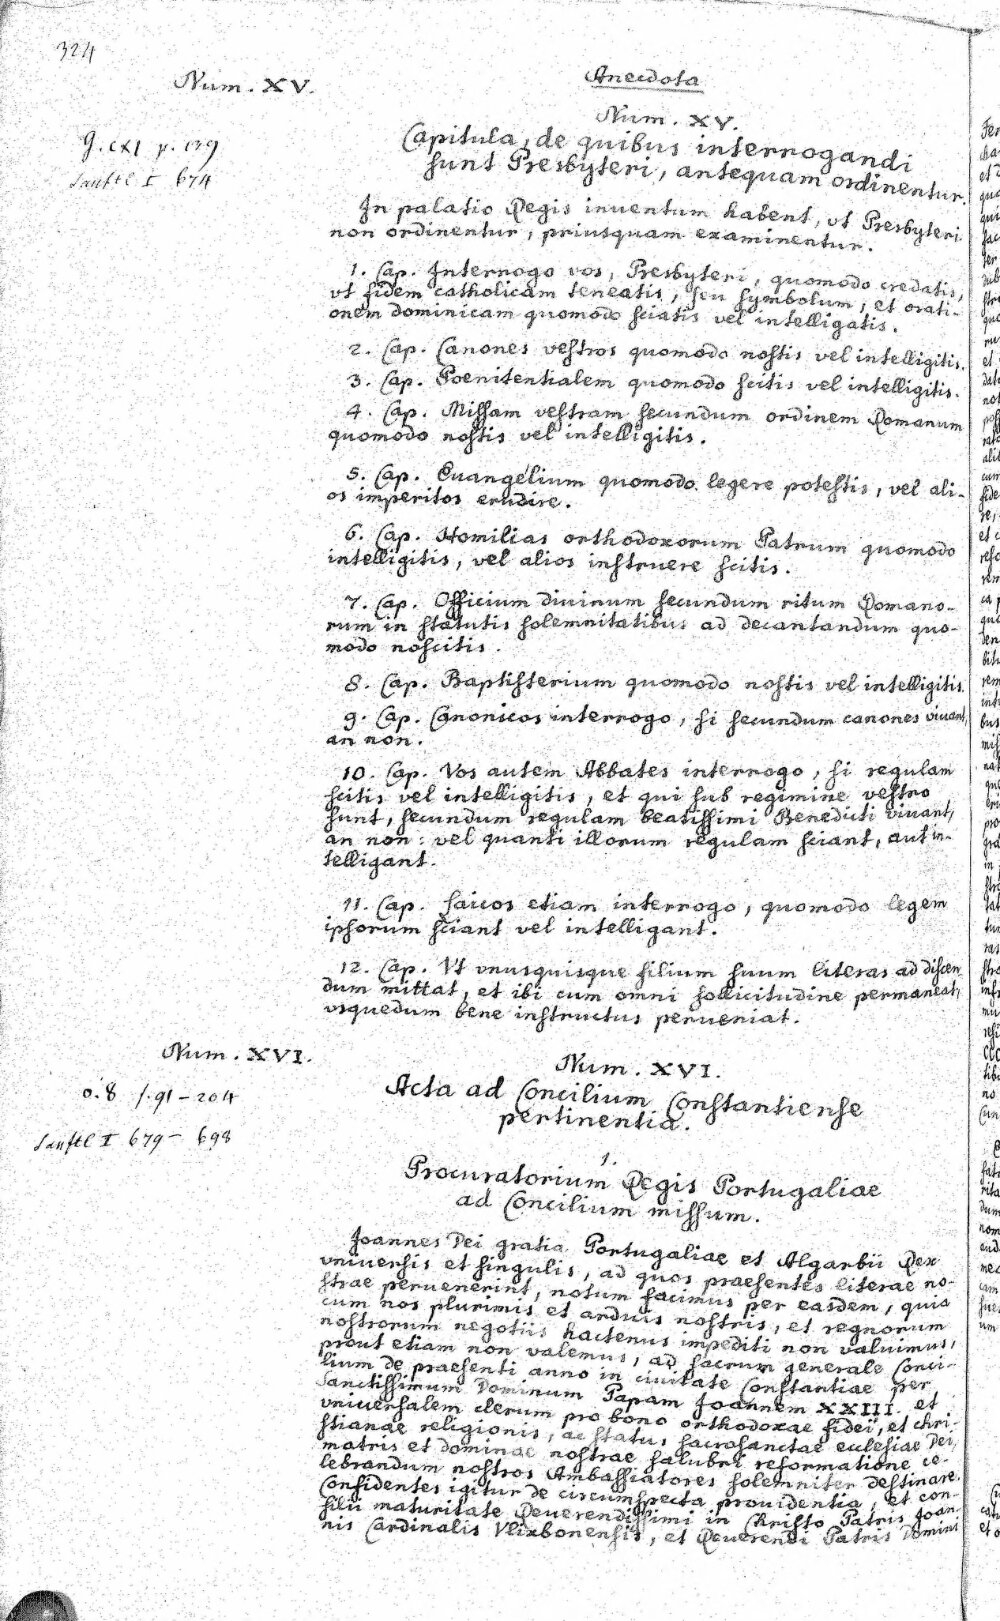 324
Num. XV.
Anecdota
Num. XV.
g. CXI p. 139
Sanftl I 674
Capitula, de quibus interrogandi
sunt Presbyteri, antequam ordinentur.
In palatio Regis inuentum habent, vt Presbyteri
non ordinentur, priusquam examinentur.
1. Cap. Interrogo vos, Presbyteri, quomodo credatis,
vt fidem catholicam teneatis, seu symbolum, et orati-
onem dominicam quomodo sciatis vel intelligatis.
2. Cap. Canones vestros quomodo nostis vel intelligitis.
3. Cap. Poenitentialem quomodo scitis vel intelligitis.
4. Cap. Missam vestram secundum ordinem Romanum
quomodo nostis vel intelligitis.
5. Cap. Euangelium quomodo legere potestis, vel ali-
os imperitos erudire.
6. Cap. Homilias orthodoxorum Patrum quomodo
intelligitis, vel alios instruere scitis.
7. Cap. Officium diuinum secundum ritum Romano-
rum in statutis solemnitatibus ad decantandum quo-
modo noscitis.
8. Cap. Baptisterium quomodo nostis vel intelligitis.
9. Cap. Canonicos interrogo, si secundum canones viuant,
an non.
10. Cap. Vos autem Abbates interrogo, si regulam
scitis vel intelligitis, et qui sub regimine vestro
sunt, secundum regulam beatissimi Benedicti viuant,
an non: vel quanti illorum regulam sciant, aut in-
telligant.
11. Cap. Laicos etiam interrogo, quomodo legem
ipsorum sciant vel intelligant.
12. Cap. Vt vnusquisque filium suum literas ad discen
dum mittat, et ibi cum omni sollicitudine permaneat,
vsquedum bene instructus perueniat.
Num. XVI.
Num. XVI.
o. 8 f. 91-204
Sanftl I 679- 698
Acta ad Concilium Constantiense
pertinentia.
1.
Procuratorium Regis Portugaliae
ad Concilium missum.
Joannes Dei gratia Portugaliae et Algarbii Rex
vniuersis et singulis, ad quos praesentes literae no-
strae peruenerint, notum facimus per easdem, quia
cum nos plurimis et arduis nostris, et regnorum
nostrorum negotiis hactenus impediti non valuimus,
prout etiam non valemus, ad sacrum generale Conci-
lium de praesenti anno in ciuitate Constantiae per
Sanctissimum Dominum Papam Joannem XXIII. et
vniuersalem clerum pro bono orthodoxae fidei, et chri-
stianae religionis, ac status sacrosanctae ecclesiae Dei,
matris et dominae nostrae salubri reformatione ce-
lebrandum nostros Ambassiatores solemniter destinare.
Confidentes igitur de circumspecta prouidentia, et con-
silii maturitate Reuerendissimi in Christo Patris Joan
nis Cardinalis Vlixbonensis, et Reuerendi Patris Domini